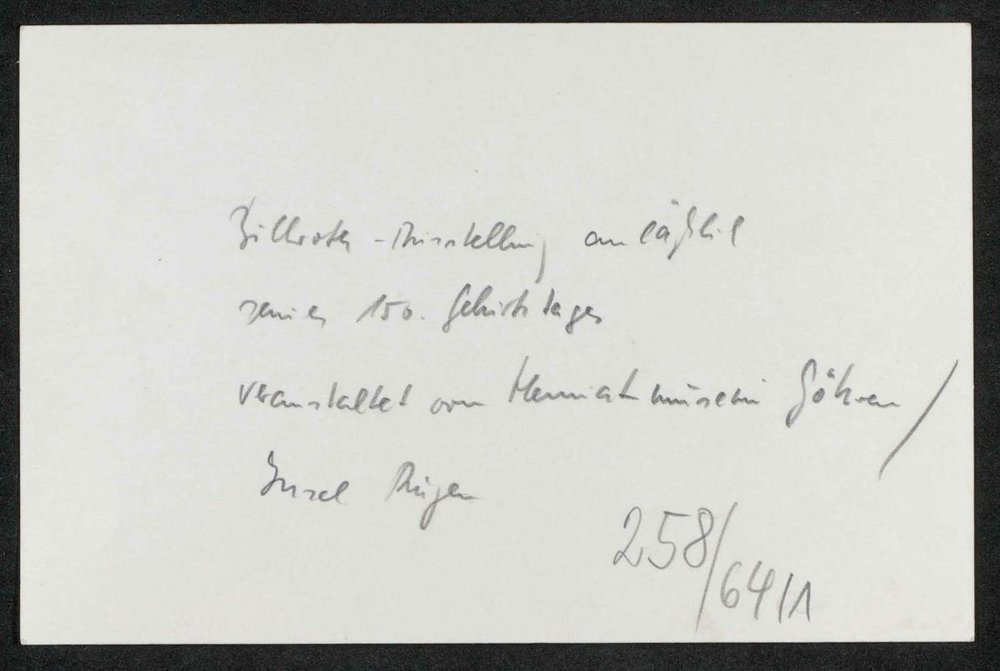 Billroth-Ausstellung anläßlich
seines 150. Geburtstages
veranstaltet vom Heimatmuseum Göhren/
Insel Rügen
258/64/1